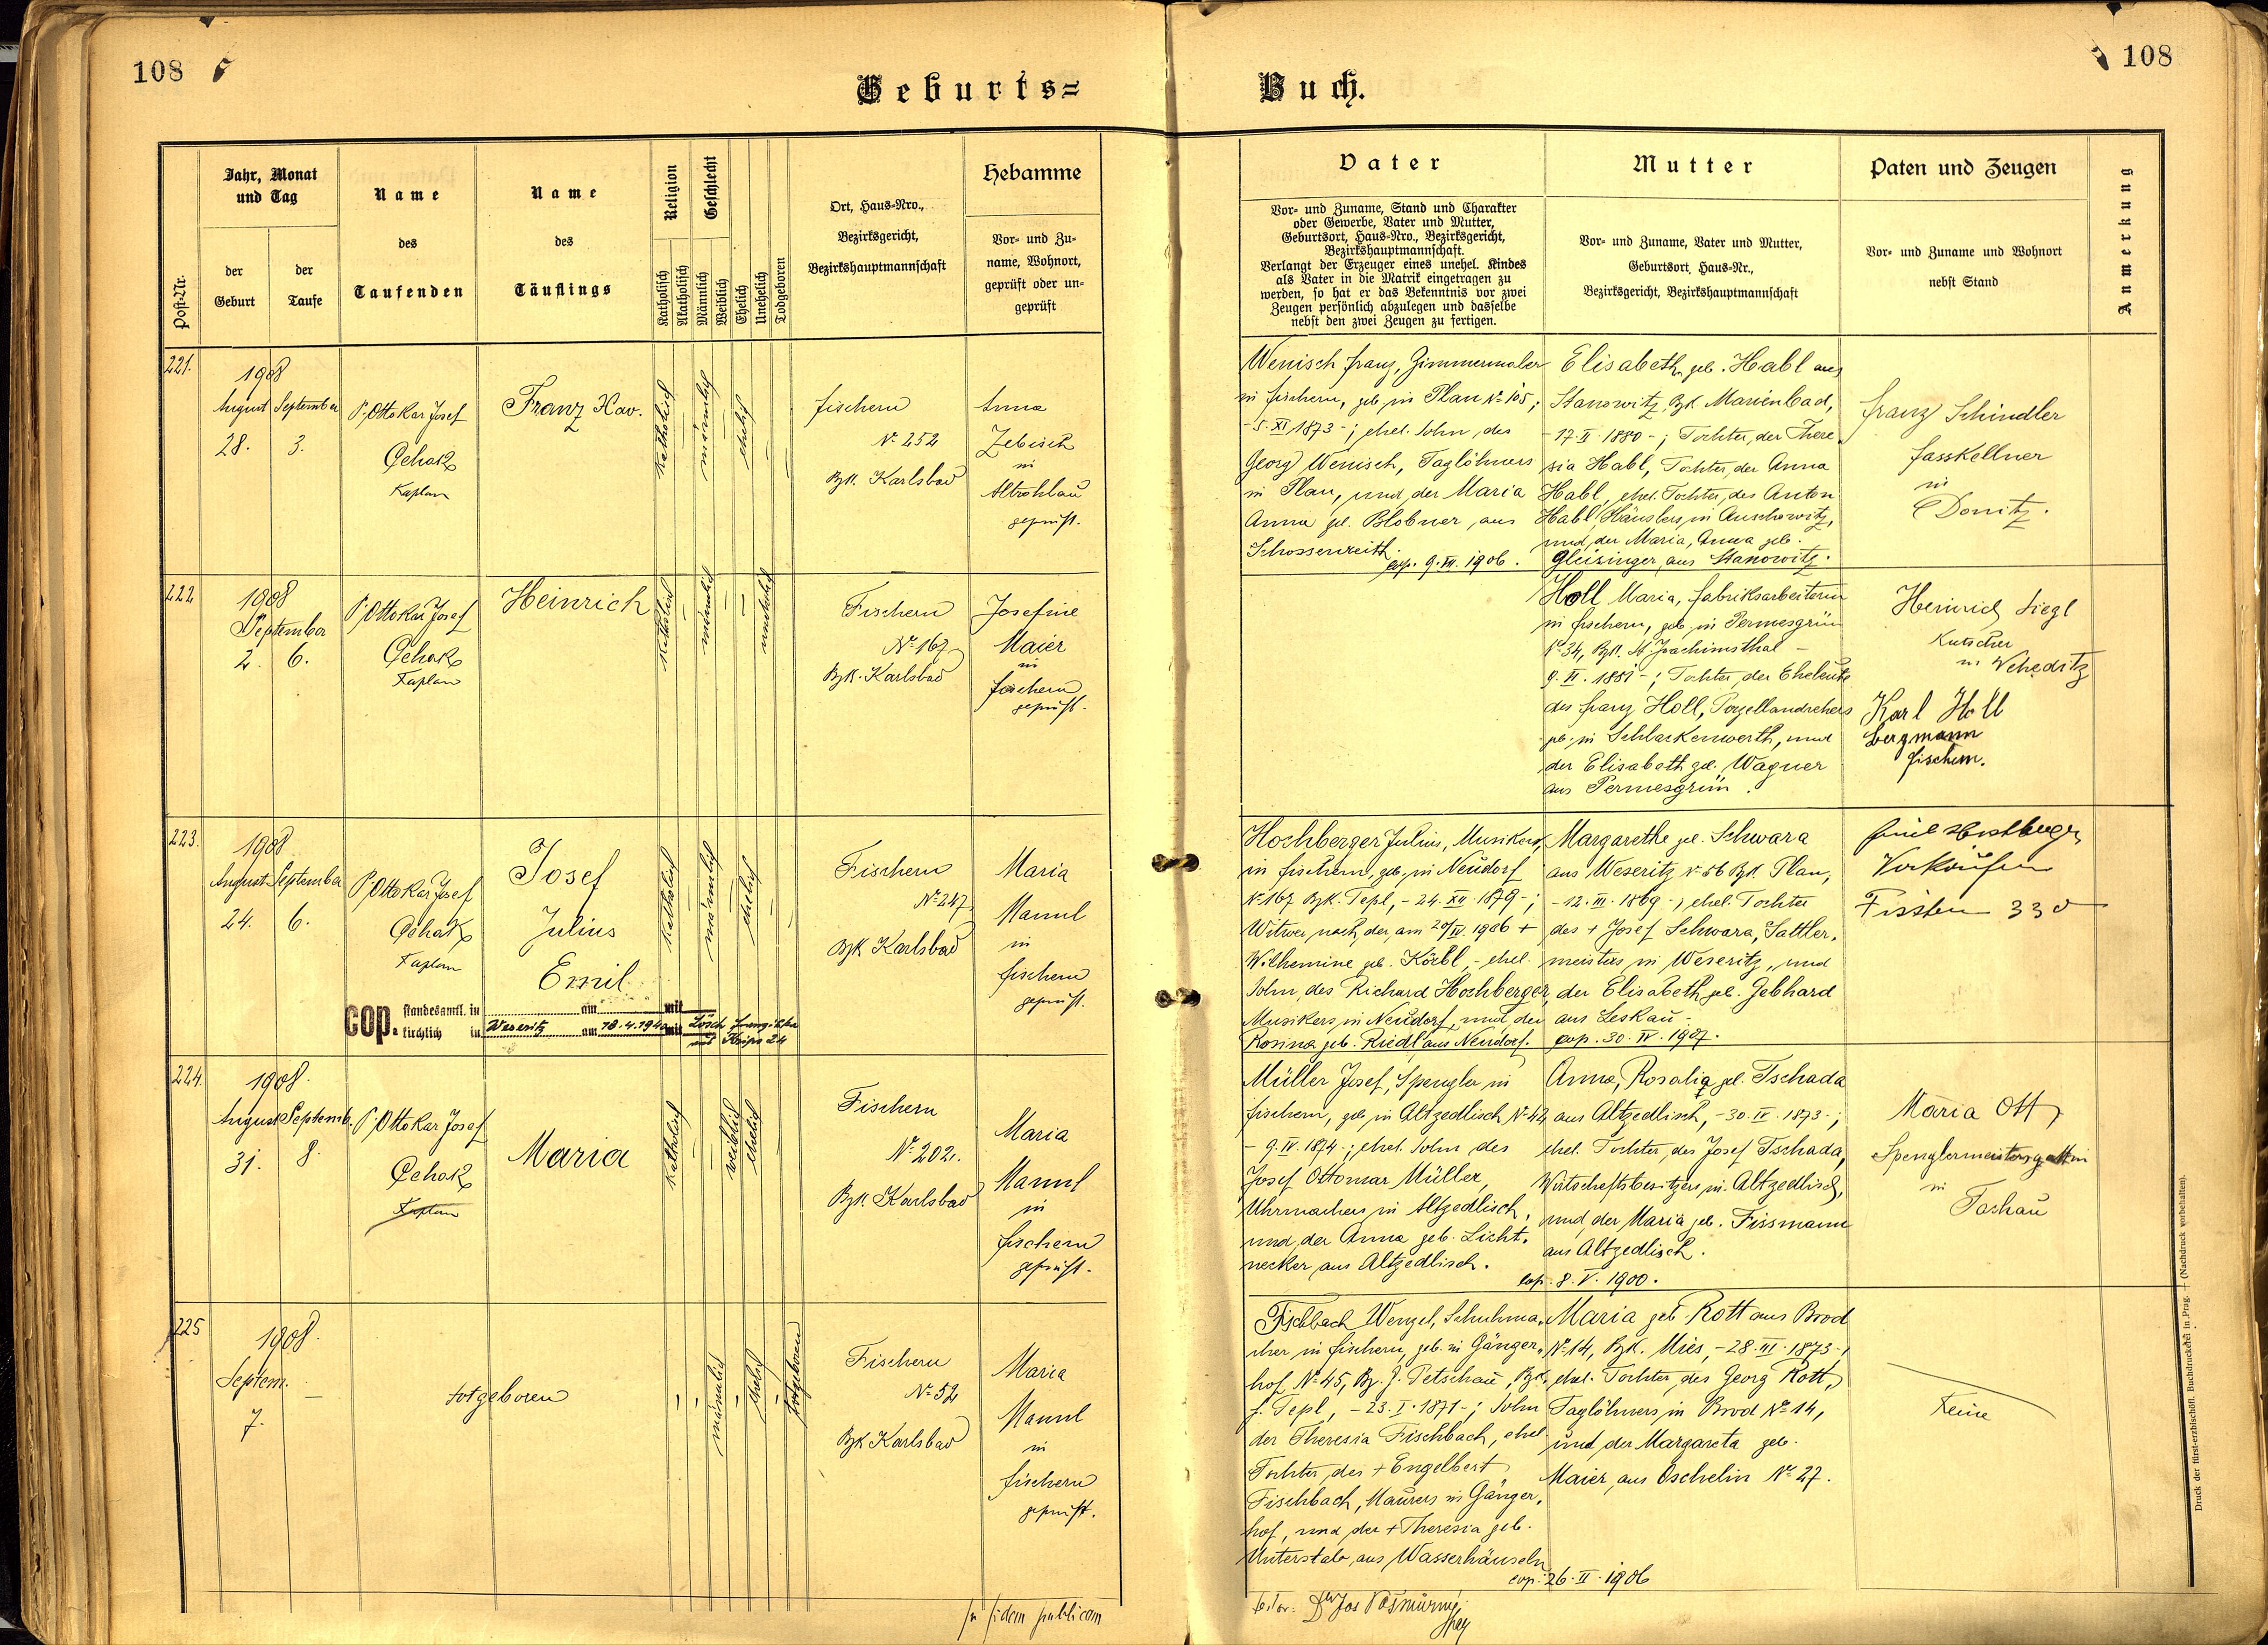 108
108
Geburts=
Buch.
Post-Nr.
Jahr, Monat
und Tag
der
Geburt
der
Taufe
Name
des
Taufenden
Name
des
Täuflings
Religion
Katholisch
Akatholisch
Geschlecht
Männlich
Weiblich
Ehelich
Unehelich
Todgeboren
Ort, Haus-Nro.,
Bezirksgericht,
Bezirkshauptmannschaft
Hebamme
Vor- und Zu-
name, Wohnort,
geprüft oder un-
geprüft
Vater
Vor- und Zuname, Stand und Charakter
oder Gewerbe, Vater und Mutter,
Geburtsort, Haus-Nro., Bezirksgericht,
Bezirkshauptmannschaft.
Verlangt der Erzeuger eines unehel. Kindes
als Vater in die Matrik eingetragen zu
werden, so hat er das Bekenntnis vor zwei
Zeugen persönlich abzulegen und dasselbe
nebst den zwei Zeugen zu fertigen.
Mutter
Vor- und Zuname, Vater und Mutter,
Geburtsort, Haus-Nr.,
Bezirksgericht, Bezirkshauptmannschaft
Paten und Zeugen
Vor- und Zuname und Wohnort
nebst Stand
Anmerkung
221.
1908
August September
28. 3.
P. Ottokar Josef
Čehák
Kaplan
Franz Xav.
katholisch
männlich
ehelich
Fischern
No 252
Bzk. Karlsbad
Anna
Zebisch
in
Altrohlau
geprüft.
Wenisch Franz, Zimmermaler
in Fischern, geb. in Plan No 105;
- 5. XI 1873 -; ehel. Sohn des
Georg Wenisch, Taglöhners
in Plan, und der Maria
Anna geb. Blobner, aus
Schossenreith.
cop. 9. VII. 1906.
Elisabeth geb. Habl aus
Stanowitz, Bzk Marienbad,
- 17. II. 1880 -; Tochter der There
sia Habl, Tochter der Anna
Habl, ehel. Tochter des Anton
Habl, Häuslers in Auschowitz,
und der Maria, Anna geb.
Gleisinger aus Stanowitz.
Franz Schindler
Fasskellner
in
Donitz.
222
1908
September
2. 6.
P. Ottokar Josef
Čehák
Kaplan
Heinrich
katholisch
männlich
unehelich
Fischern
No 167
Bzk. Karlsbad
Josefine
Maier
in
Fischern
geprüft.
Holl Maria, Fabriksarbeiterin
in Fischern, geb. in Permesgrün
No 34, Bzk. St Joachimsthal -
9. II. 1881 -; Tochter der Eheleute
des Franz Holl, Porzellandrehers
geb. in Schlackenwerth, und
der Elisabeth geb. Wagner
aus Permesgrün.
Heinrich Siegl
Kutscher
in Weheditz
Karl Holl
Bergmann
Fischern.
223.
1908
August September
24. 6.
P. Ottokar Josef
Čehák
Kaplan
Josef
Julius
Emil
katholisch
männlich
ehelich
Fischern
No 247
Bzk Karlsbad
Maria
Mannl
in
Fischern
geprüft.
cop. standesamtl. in am mit
kirchlich in Weseritz am 18.4.1940 mit Lösch Franziska
Hochberger Julius, Musikers
in Fischern, geb. in Neudorf
No 167 Bzk. Tepl, - 24. XII 1879 -;
Witwer nach der am 20/IV. 1906 +
Wilhemine geb. Körbl, - ehel.
Sohn des Richard Hochberger,
Musikers in Neudorf, und der
Rosina geb. Riedl aus Neudorf.
Margarethe geb. Schwara
aus Weseritz No 56 Bzk. Plan,
- 12. III. 1869 -, ehel. Tochter
des + Josef Schwara, Sattler-
meisters in Weseritz, und
der Elisabeth geb. Gebhard
aus Leskau.
cop. 30. IV. 1907.
Emil Hochberger
330
224.
1908.
August Septemb.
31. 8.
P. Ottokar Josef
Čehák
Kaplan
Maria
katholisch
weiblich
ehelich
Fischern
No 202.
Bzk. Karlsbad
Maria
Mannl
in
Fischern
geprüft.
Müller Josef, Spengler in
Fischern, geb. in Altzedlisch No 42,
- 9. IV. 1874 -; ehel. Sohn des
Josef Ottomar Müller,
Uhrmachers in Altzedlisch,
und der Anna geb. Licht-
necker aus Altzedlisch.
cop. 8. V. 1900.
Anna, Rosalia geb. Tschada
aus Altzedlisch, - 30. IV. 1873 -;
ehel. Tochter des Josef Tschada,
Wirtschaftsbesitzers in Altzedlisch,
und der Maria geb. Fissmann
aus Altzedlisch.
Maria Ott,
Spenglermeistersgattin
in
Tachau
225
1908.
Septem. —
7.
totgeboren
männlich
ehelich
totgeboren
Fischern
No 52
Bzk Karlsbad
Maria
Mannl
in
Fischern
geprüft.
Fischbach Wenzel, Schuhma-
cher in Fischern, geb. in Gänger-
hof No 45, Bz. G. Petschau, Bzk.
h. Tepl, - 23. I. 1871 -; Sohn
der Theresia Fischbach, ehel.
Tochter des + Engelbert
Fischbach, Maurers in Gänger-
hof, und der + Theresia geb.
Unterstab aus Wasserhäuseln
cop: 26. II. 1906
Maria geb. Rott aus Brod
No 14, Bzk. Mies, - 28. III. 1873 -,
ehel. Tochter des Georg Rott,
Taglöhners in Brod No 14,
und der Margareta geb.
Maier, aus Oschelin No 27.
Keine
In fidem publicam
Druck der fürst-erzbischöfl. Buchdruckerei in Prag. — (Nachdruck vorbehalten).